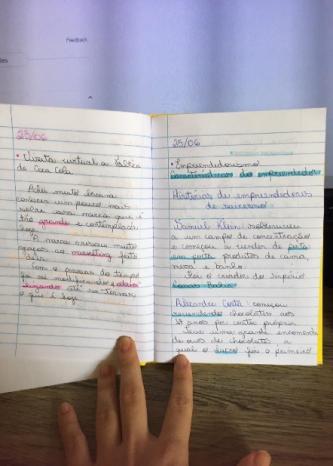 Feedback
23/06
• Visita virtual a fábrica
da Coca Cola
Achei muito bacana
conhecer um pouco mais
sobre essa marca que é
tão grande e contemplada
hoje.
A marca cresceu muito
graças ao marketing feito
dela.
Com o passar do tempo
foi se modificando e
até se tornar
o que é hoje.
25/06
• Empreendedorismo
Características dos empreendedores
Histórias de empreendedores
de sucesso
Samuel Klein: sobreviveu
a um campo de concentração
e começou a vender de porta
em porta produtos de cama,
mesa e banho.
Foi o criador do império
Casas Bahia
Alexandre Costa: começou
revendendo chocolates aos
17 anos por conta própria
Teve uma grande encomenda
de ovos de chocolate, a
qual o foi o primeiro